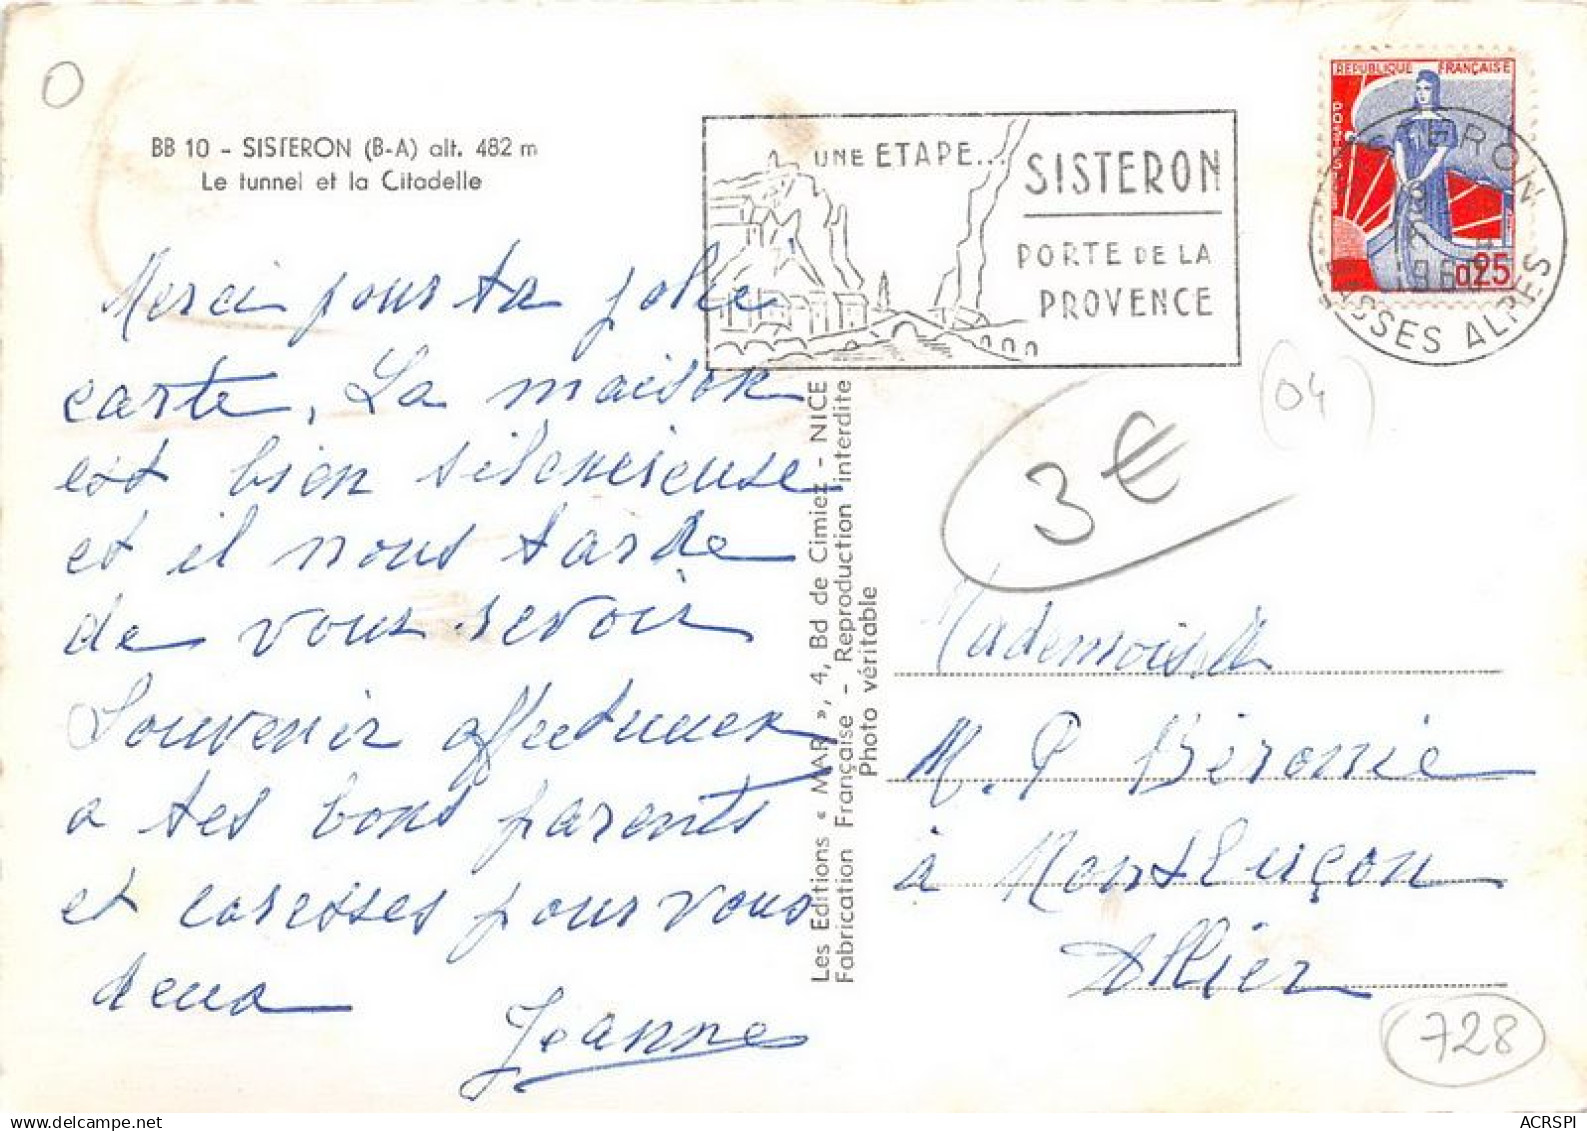 BB 10 - SISTERON (B-A) alt. 482 m
Le tunnel et la Citadelle
Merci pour ta jolie
carte. La maison
est bien silencieuse
et il nous tarde
de vous revoir
Souvenir affectueux
a tes bons parents
et caresses pour vous
deux
Jeanne
UNE ETAPE...
SISTERON
PORTE DE LA
PROVENCE
REPUBLIQUE FRANÇAISE
POSTES
0,25
SISTERON
BASSES ALPES
04
3€
Les Editions « MAR », 4, Bd de Cimiez - NICE
Fabrication Française - Reproduction interdite
Photo véritable
Mademoiselle
M. P Béronie
à Montluçon
Allier
728
ACRSPI